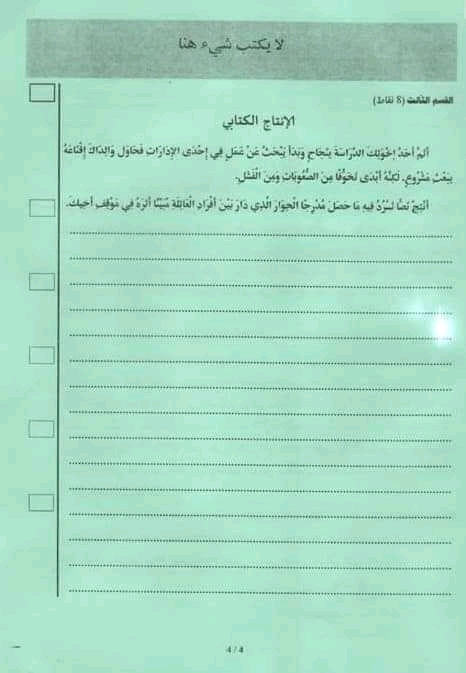 لا يكتب شيء هنا
القسم الثالث (8 نقاط)
الإنتاج الكتابي
أَتَمَّ أَحَدُ إِخْوَتِكَ الدِّرَاسَةَ بِنَجَاحٍ وَبَدَأَ يَبْحَثُ عَنْ عَمَلٍ فِي إِحْدَى الإِدَارَاتِ فَحَاوَلَ وَالِدَاكَ إِقْنَاعَهُ
بِبَعْثِ مَشْرُوعٍ. لَكِنَّهُ أَبْدَى تَخَوُّفًا مِنَ الصُّعُوبَاتِ وَمِنَ الْفَشَلِ.
أَنْتِجْ نَصًّا تَسْرُدُ فِيهِ مَا حَصَلَ مُدْرِجًا الْحِوَارَ الَّذِي دَارَ بَيْنَ أَفْرَادِ الْعَائِلَةِ مُبَيِّنًا أَثَرَهُ فِي مَوْقِفِ أَخِيكَ.
4 / 4